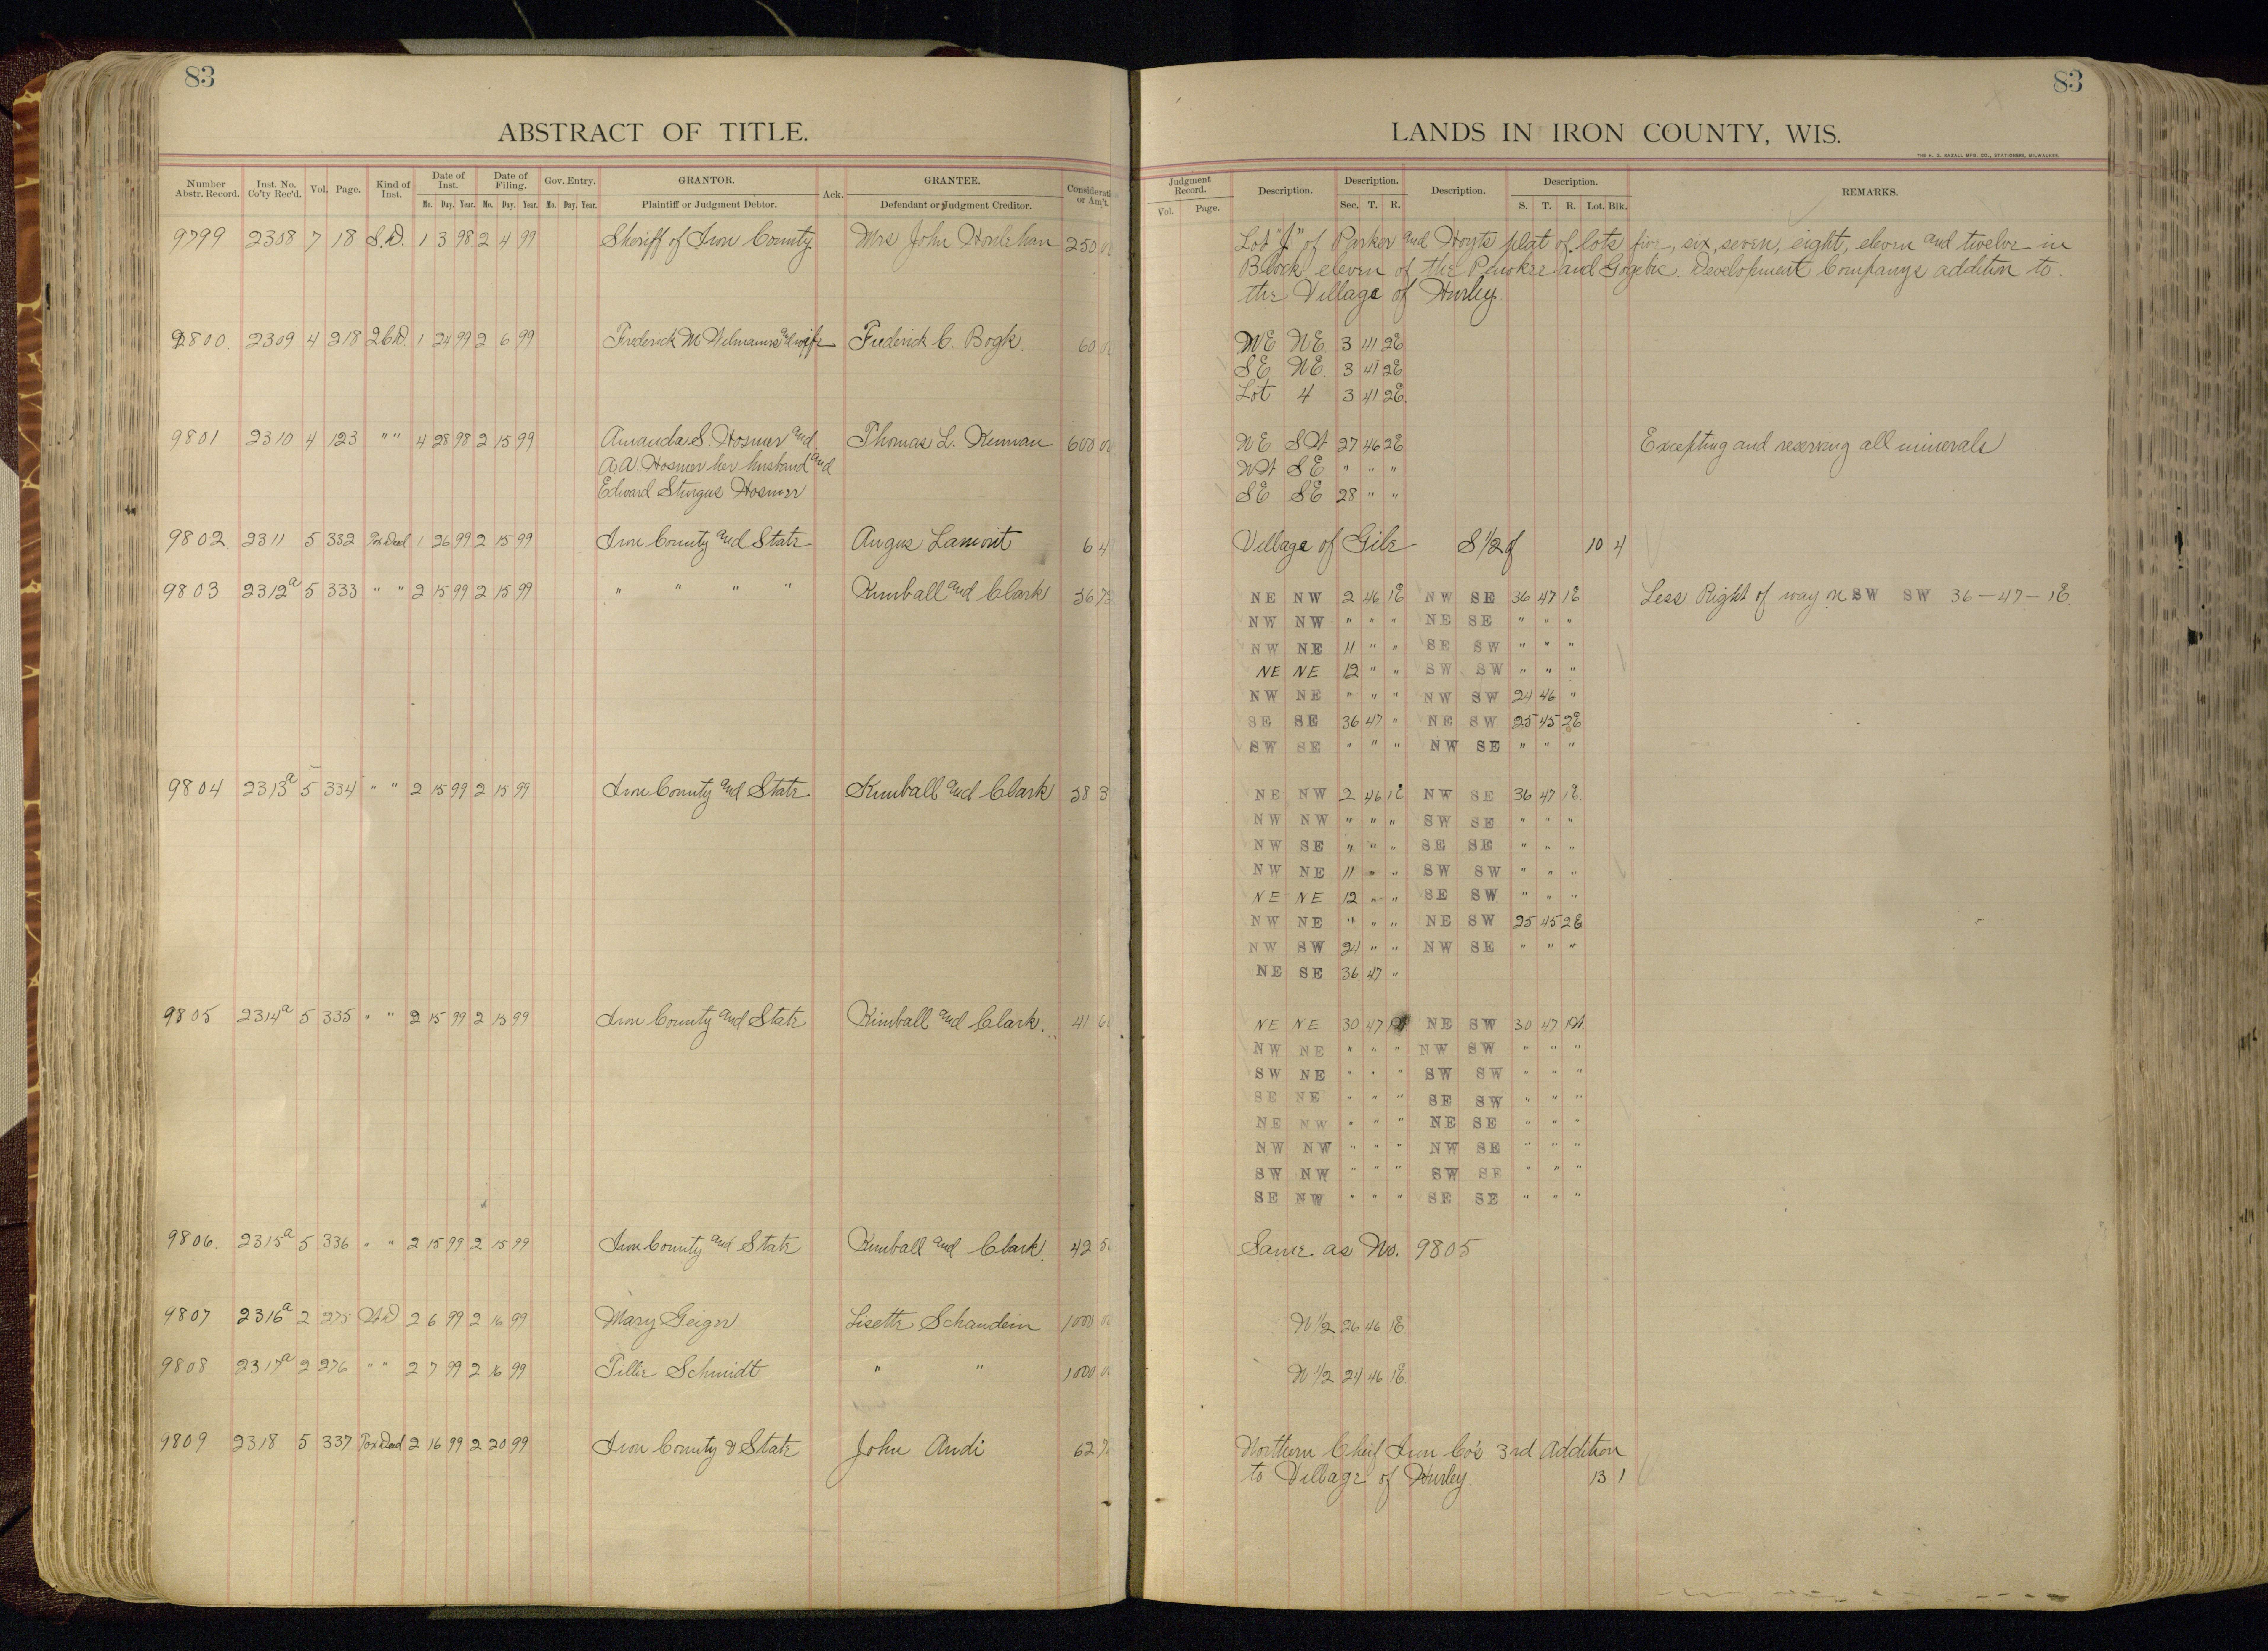 83
ABSTRACT OF TITLE.
Number Abstr. Record. Inst. No. Co'ty Rec'd. Vol. Page. Kind of Inst. Date of Inst. Date of Filing. Gov. Entry. GRANTOR. Ack. GRANTEE. Considerati or Am't.
Mo. Day. Year. Mo. Day. Year. Mo. Day. Year. Plaintiff or Judgment Debtor. Defendant or Judgment Creditor.
9799 2308 7 18 S.D. 1 3 98 2 4 99 Sheriff of Iron County Mrs John Houlehan 250 00
9800 2309 4 218 2CD. 1 24 99 2 6 99 Frederick M Wilmanns and wife Frederick C. Bogk 60 00
9801 2310 4 123 " " 4 28 98 2 15 99 Amanda S. Hosmer and Thomas L. 600 00
A A Hosmer her husband and
Edward Sturgus Hosmer
9802 2311 5 332 Tax Deed 1 26 99 2 15 99 Iron County and State Angus Lamont 6 4
9803 2312a 5 333 " " 2 15 99 2 15 99 " " " " Kimball and Clark 56 73
9804 2313a 5 334 " " 2 15 99 2 15 99 Iron County and State Kimball and Clark 58 3
9805 2314a 5 335 " " 2 15 99 2 15 99 Iron County and State Kimball and Clark. 41 6
9806. 2315a 5 336 " " 2 15 99 2 15 99 Iron County and State Kimball and Clark. 42 5
9807 2316a 2 275 WD 2 6 99 2 16 99 Mary Geiger Lisette Schandein 1000 00
9808 2317a 2 276 " " 2 7 99 2 16 99 Tillie Schmidt " " 1000 0
9809 2318 5 337 Tax Deed 2 16 99 2 20 99 Iron County & State John Andi 62
83
LANDS IN IRON COUNTY, WIS.
THE H. G. RAZALL MFG. CO., STATIONERS, MILWAUKEE.
Judgment Record. Description. Description. Description. Description. REMARKS.
Vol. Page. Sec. T. R. S. T. R. Lot. Blk.
Lot "J" of Parker and Hoyts plat of lots five, six, seven, eight, eleven and twelve in
Block eleven of the Penokee and Gogebic Development Companys addition to
the Village of Hurley.
NE NE 3 41 2E
SE NE 3 41 2E
Lot 4 3 41 2E.
NE SW 27 46 2E Excepting and reserving all minerals
NW SE " " "
SE SE 28 " "
Village of Gile S 1/2 of 10 4
NE NW 2 46 1E NW SE 36 47 1E Less Right of way on SW SW 36-47-1E.
NW NW " " " NE SE " " "
NW NE 11 " " SE SW " " "
NE NE 12 " " SW SW " " "
NW NE " " " NW SW 24 46 "
SE SE 36 47 " NE SW 25 45 2E
SW SE " " " NW SE " " "
NE NW 2 46 1E NW SE 36 47 1E.
NW NW " " " SW SE " " "
NW SE " " " SE SE " " "
NW NE 11 " " SW SW " " "
NE NE 12 " " SE SW " " "
NW NE " " " NE SW 25 45 2E
NW SW 24 " " NW SE " " "
NE SE 36 47 "
NE NE 30 47 NE SW 30 47 1W.
NW NE " " " NW SW " " "
SW NE " " " SW SW " " "
SE NE " " " SE SW " " "
NE NW " " " NE SE " " "
NW NW " " " NW SE " " "
SW NW " " " SW SE " " "
SE NW " " " SE SE " " "
Same as No. 9805
N 1/2 26 46 1E.
N 1/2 24 46 1E.
Northern Chief Iron Co's 3rd Addition
to Village of Hurley. 13 1